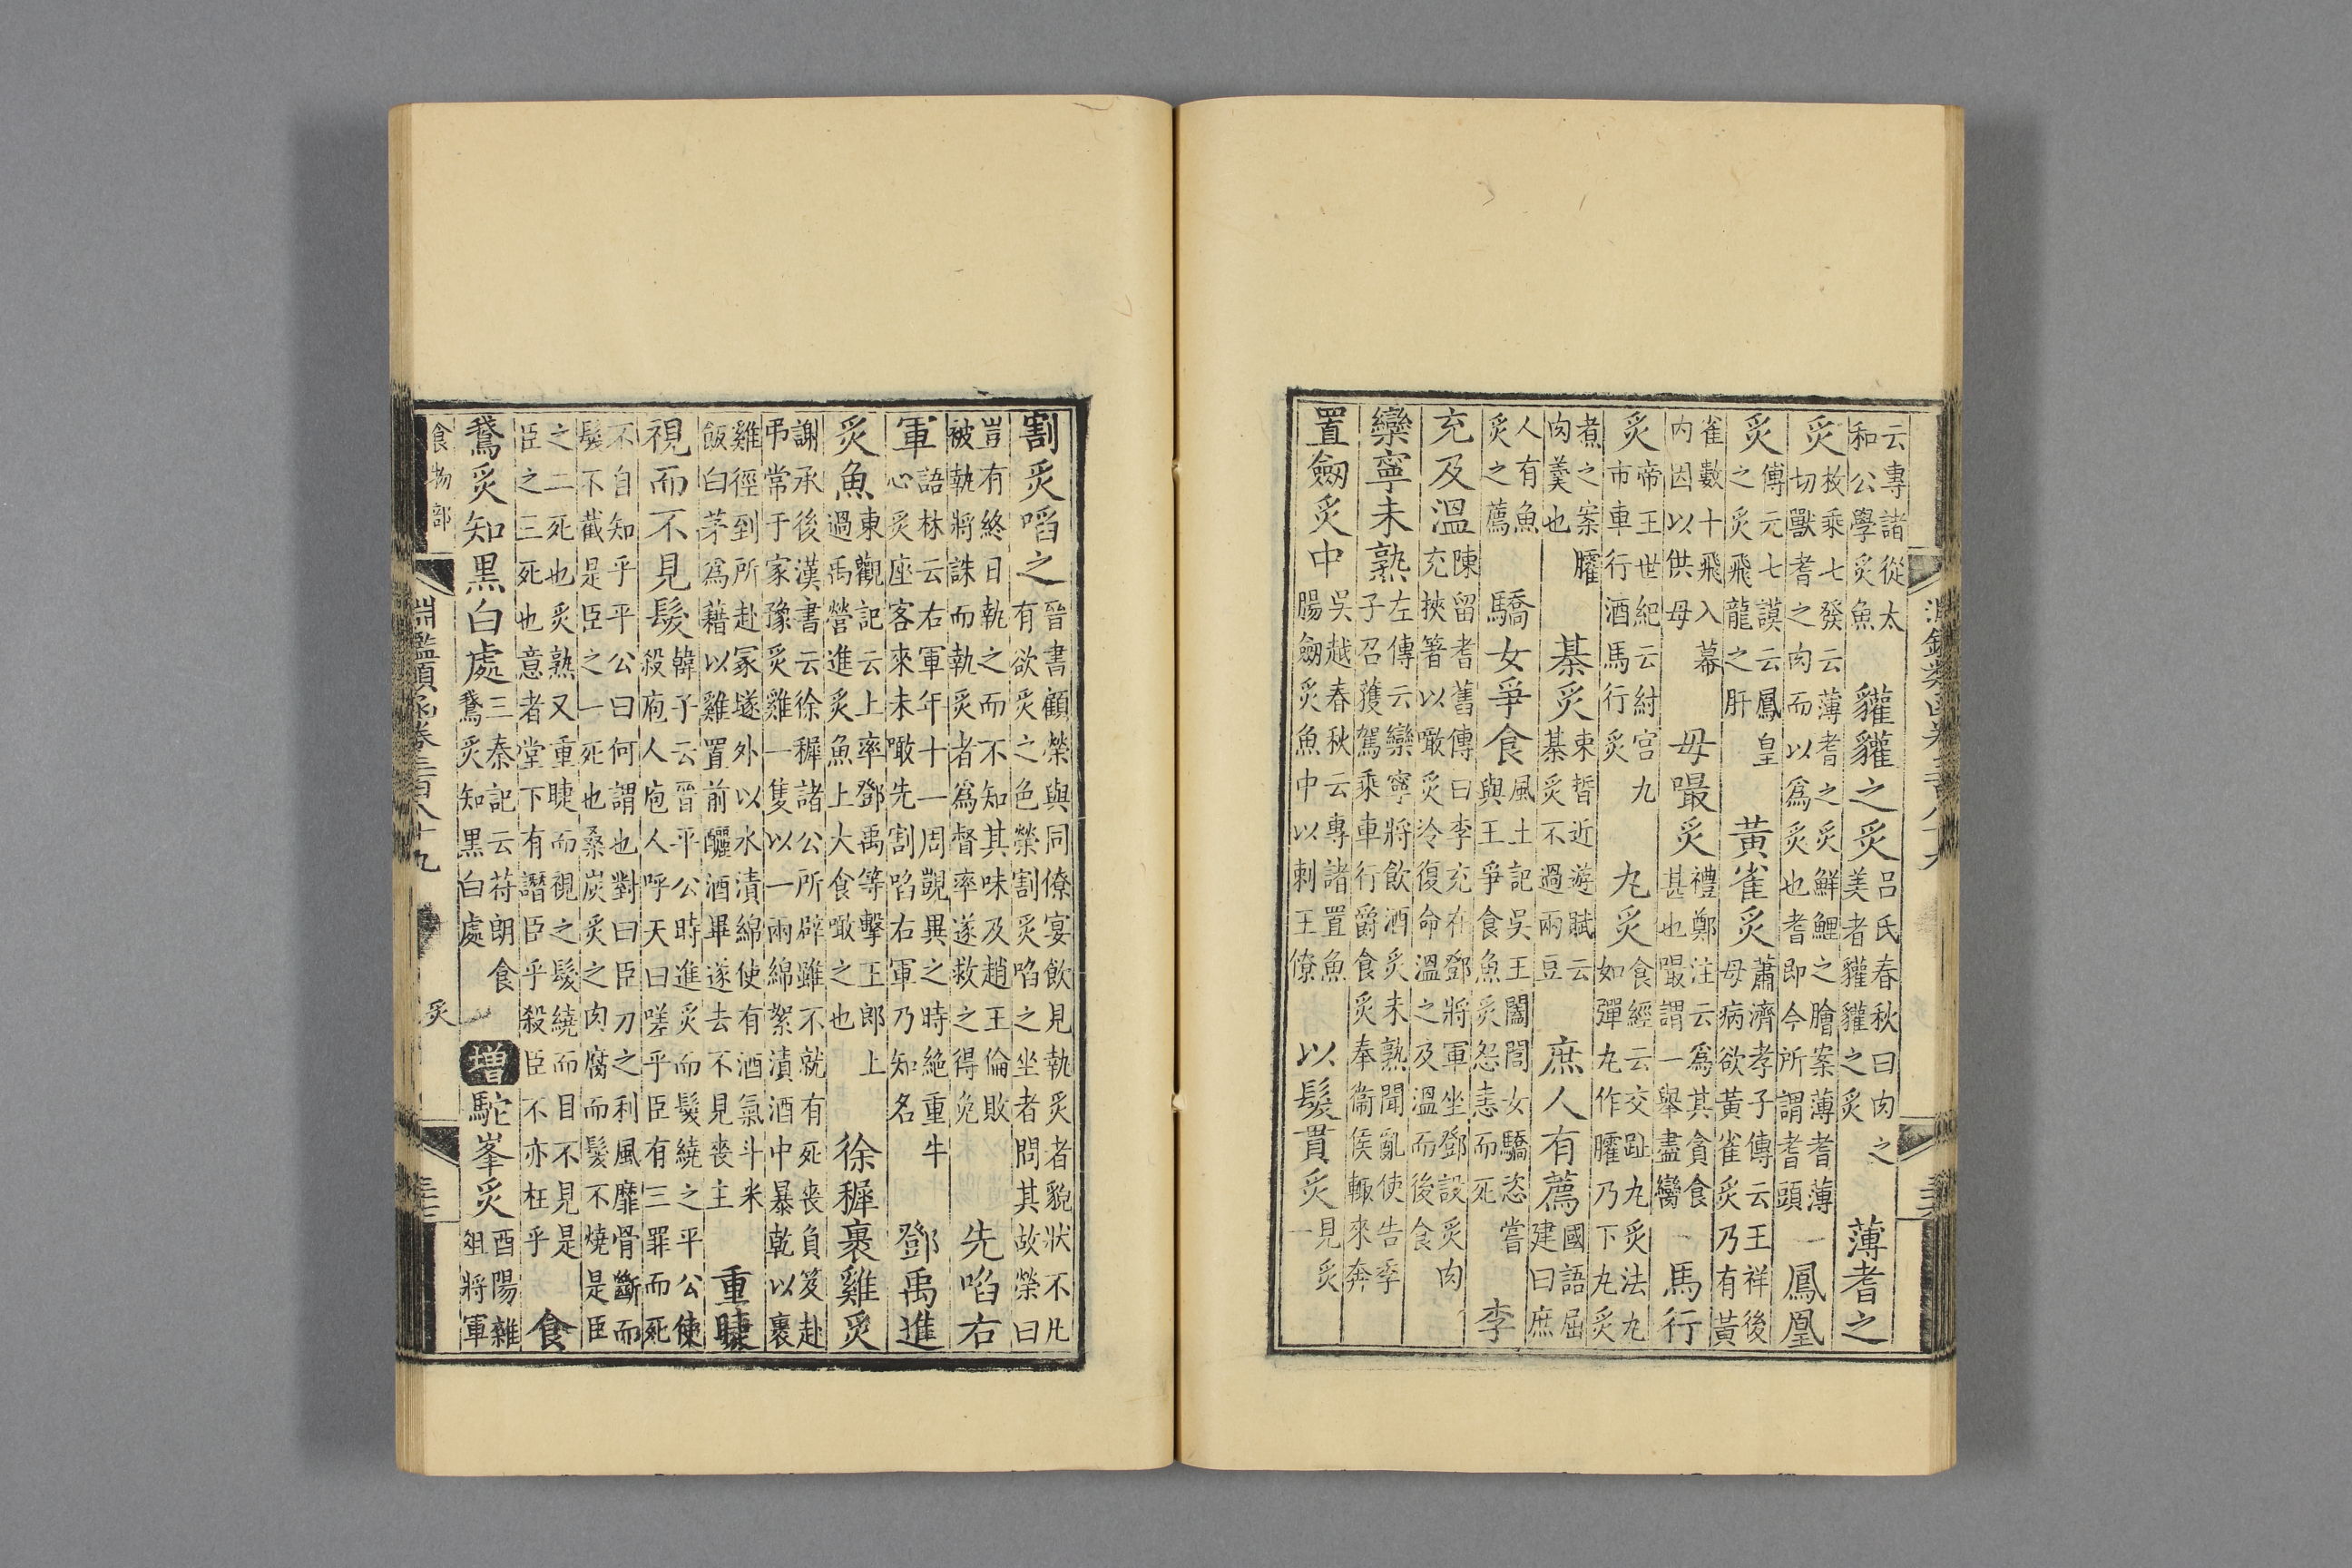 云專諸從太和公學炙魚 貛貛之炙 呂氏春秋曰肉之美者貛貛之炙 薄耆之
炙 枚乘七發云薄耆之炙鮮鯉之膾案薄耆薄切獸耆之肉而以爲炙也耆即今所謂耆頭一 鳳凰
炙 傅元七謨云鳳皇之炙飛龍之肝 黃雀炙 蕭濟孝子傳云王祥後母病欲黃雀炙乃有黃
雀數十飛入幕内因以供母 毋嘬炙 禮鄭注云爲其貪食甚也嘬謂一舉盡臠 馬行
炙 帝王世紀云紂宫九市車行酒馬行炙 丸炙 食經云交趾丸炙法丸如彈丸作臛乃下丸炙
煮之案臛肉羹也 綦炙 束晳近遊賦云綦炙不過兩豆 庶人有薦 國語屈建曰庶
人有魚炙之薦 驕女爭食 風土記吳王闔閭女驕恣嘗與王爭食魚炙怨恚而死 李
充及溫 陳留耆舊傳曰李充在鄧將軍坐鄧設炙肉充挾箸以噉炙冷復命溫之及溫而後食
欒寧未熟 左傳云欒寧將飲酒炙未熟聞亂使告季子召獲駕乘車行爵食炙奉衞侯輒來奔
置劒炙中 吳越春秋云專諸置魚腸劒炙魚中以刺王僚 以髮貫炙 見炙一
割炙啗之 晉書顧榮與同僚宴飲見執炙者貌狀不凡有欲炙之色榮割炙啗之坐者問其故榮曰
豈有終日執之而不知其味及趙王倫敗被執將誅而執炙者爲督率遂救之得免 先啗右
軍 語林云右軍年十一周覬異之時絶重牛心炙座客來未噉先割啗右軍乃知名 鄧禹進
炙魚 東觀記云上率鄧禹等擊王郎上過禹營進炙魚上大食噉之也 徐穉裹雞炙
謝承後漢書云徐穉諸公所辟雖不就有死喪負笈赴弔常于家豫炙雞一隻以一兩綿絮漬酒中暴乾以裹
雞徑到所赴冢遂外以水漬綿使有酒氣斗米飯白茅爲藉以雞置前釃酒畢遂去不見喪主 重睫
視而不見髮 韓子云晉平公時進炙而髮繞之平公使殺庖人庖人呼天曰嗟乎臣有三罪而死
不自知乎平公曰何謂也對曰臣刀之利風靡骨斷而髮不截是臣之一死也桑炭炙之肉腐而髮不燒是臣
之二死也炙熟又重睫而視之髮繞而目不見是臣之三死也意者堂下有譖臣乎殺臣不亦枉乎 食
鵞炙知黑白處 三秦記云苻朗食鵞炙知黑白處 增 駝峯炙 酉陽雜俎將軍
食物部 淵鑑類函卷三百八十九 炙